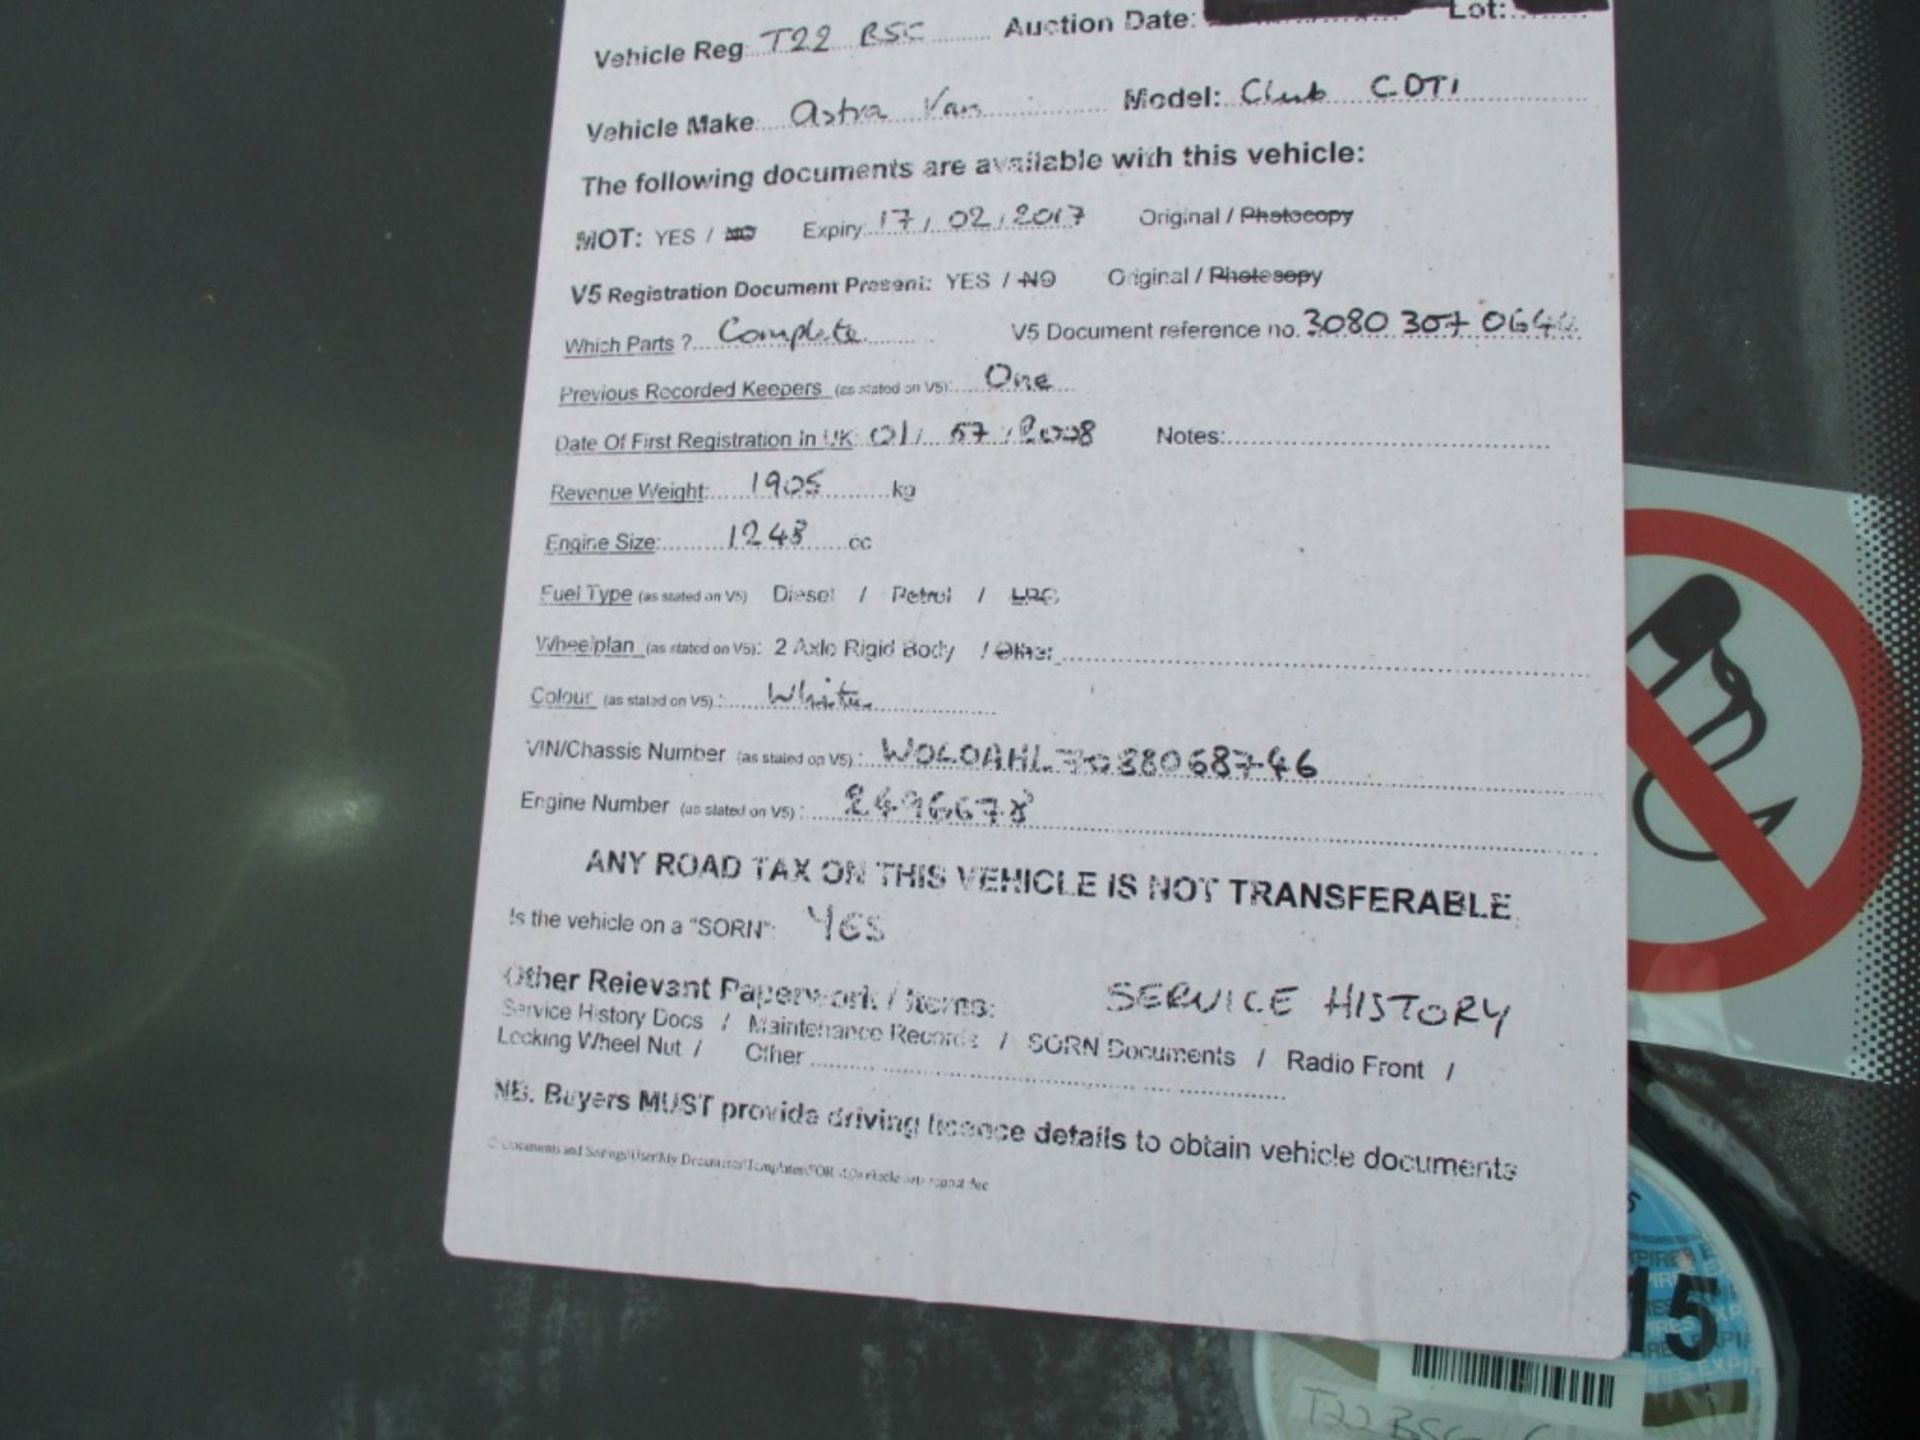 Vehicle Reg T22 BSG Auction Date: Lot:
Vehicle Make Astra Van Model: Club CDTI
The following documents are available with this vehicle:
MOT: YES / NO Expiry: 17 / 02 / 2017 Original / Photocopy
V5 Registration Document Present: YES / NO Original / Photocopy
Which Parts ? Complete V5 Document reference no. 3080 307 064
Previous Recorded Keepers (as stated on V5): One
Date Of First Registration In UK: 01 / 07 / 2008 Notes:
Revenue Weight: 1905 kg
Engine Size: 1248 cc
Fuel Type (as stated on V5) Diesel / Petrol / LPG
Wheelplan (as stated on V5): 2 Axle Rigid Body / Other
Colour (as stated on V5): White
VIN/Chassis Number (as stated on V5): W0L0AHL7088068746
Engine Number (as stated on V5): 2496678
ANY ROAD TAX ON THIS VEHICLE IS NOT TRANSFERABLE
Is the vehicle on a "SORN": YES
Other Relevant Paperwork / Items: SERVICE HISTORY
Service History Docs / Maintenance Records / SORN Documents / Radio Front /
Locking Wheel Nut / Other
NB. Buyers MUST provide driving licence details to obtain vehicle documents
15
T22 BSG